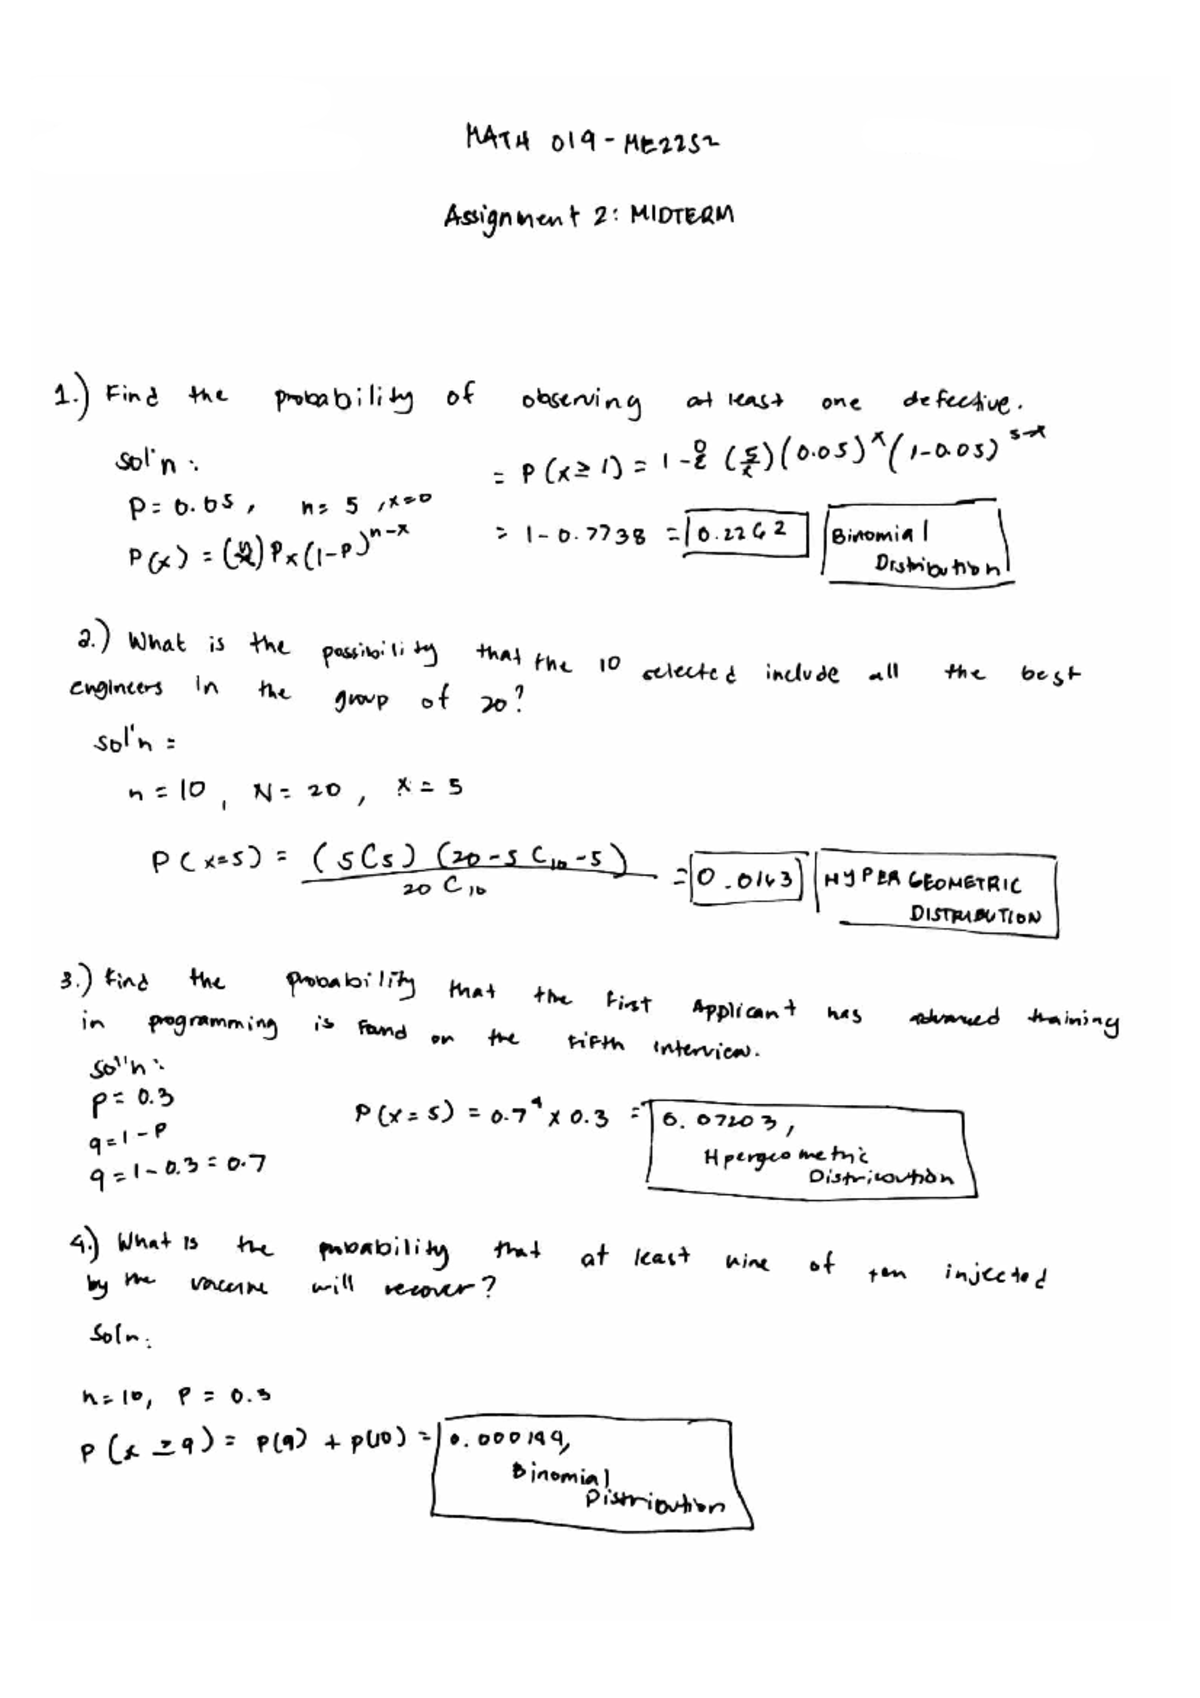 MATH 019 - ME22S2
Assignment 2: MIDTERM
1.) Find the probability of observing at least one defective.
sol'n:
= P(x ≥ 1) = 1 - Σ (5/x)(0.05)^x (1-0.05)^5-x
P = 0.05, n = 5, x=0
= 1 - 0.7738 = 0.2262 Binomial Distribution
P(x) = ( ) Px (1-P)^n-x
2.) What is the possibility that the 10 selected include all the best
engineers in the group of 20?
sol'n =
n = 10, N = 20, x = 5
P(x=5) = (5C5) (20-5 C10-5) / 20 C10 = 0.0163 HYPERGEOMETRIC DISTRIBUTION
3.) Find the probability that the first Applicant has advanced training
in programming is found on the fifth interview.
sol'n:
p = 0.3
P(x=5) = 0.7^4 x 0.3 = 0.07203,
q = 1 - P
Hpergeometric
q = 1 - 0.3 = 0.7
Distribution
4.) What is the probability that at least nine of ten injected
by the vaccine will recover?
Soln:
n = 10, P = 0.3
P(x ≥ 9) = P(9) + P(10) = 0.000144,
Binomial
Distribution